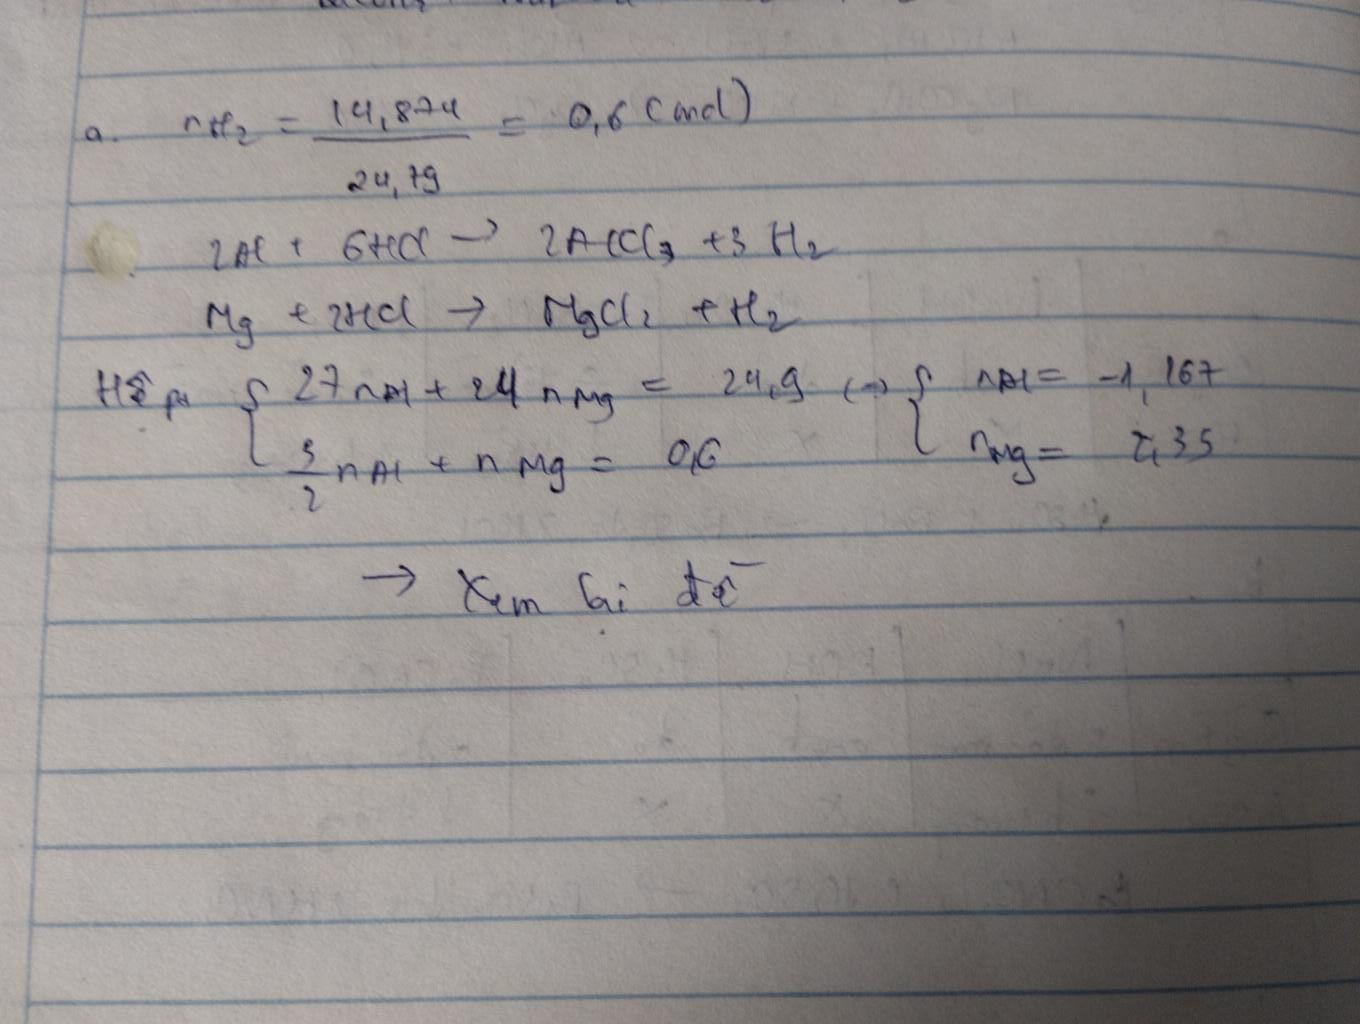 a. nH₂ = 14,874 / 24,79 = 0,6 (mol)
2Al + 6HCl → 2AlCl₃ + 3H₂
Mg + 2HCl → MgCl₂ + H₂
Hệ pt { 27 nAl + 24 nMg = 24,9 ⇔ { nAl = -1,167
3/2 nAl + nMg = 0,6 nMg = 2,35
→ Xem lại đề